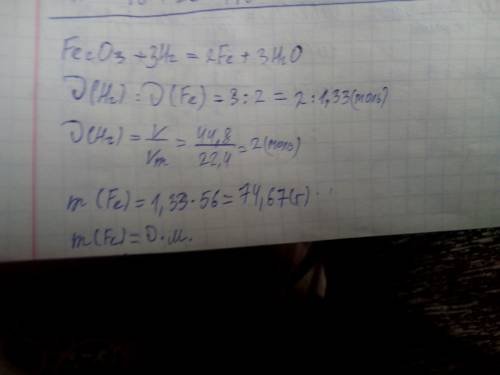 Fe₂O₃ + 3H₂ = 2Fe + 3H₂O
ν(H₂) : ν(Fe) = 3 : 2 = 2 : 1,33 (моль)
ν(H₂) = V/Vm = 44,8/22,4 = 2 (моль)
m (Fe) = 1,33 · 56 = 74,67 (г)
m (Fe) = ν · M.